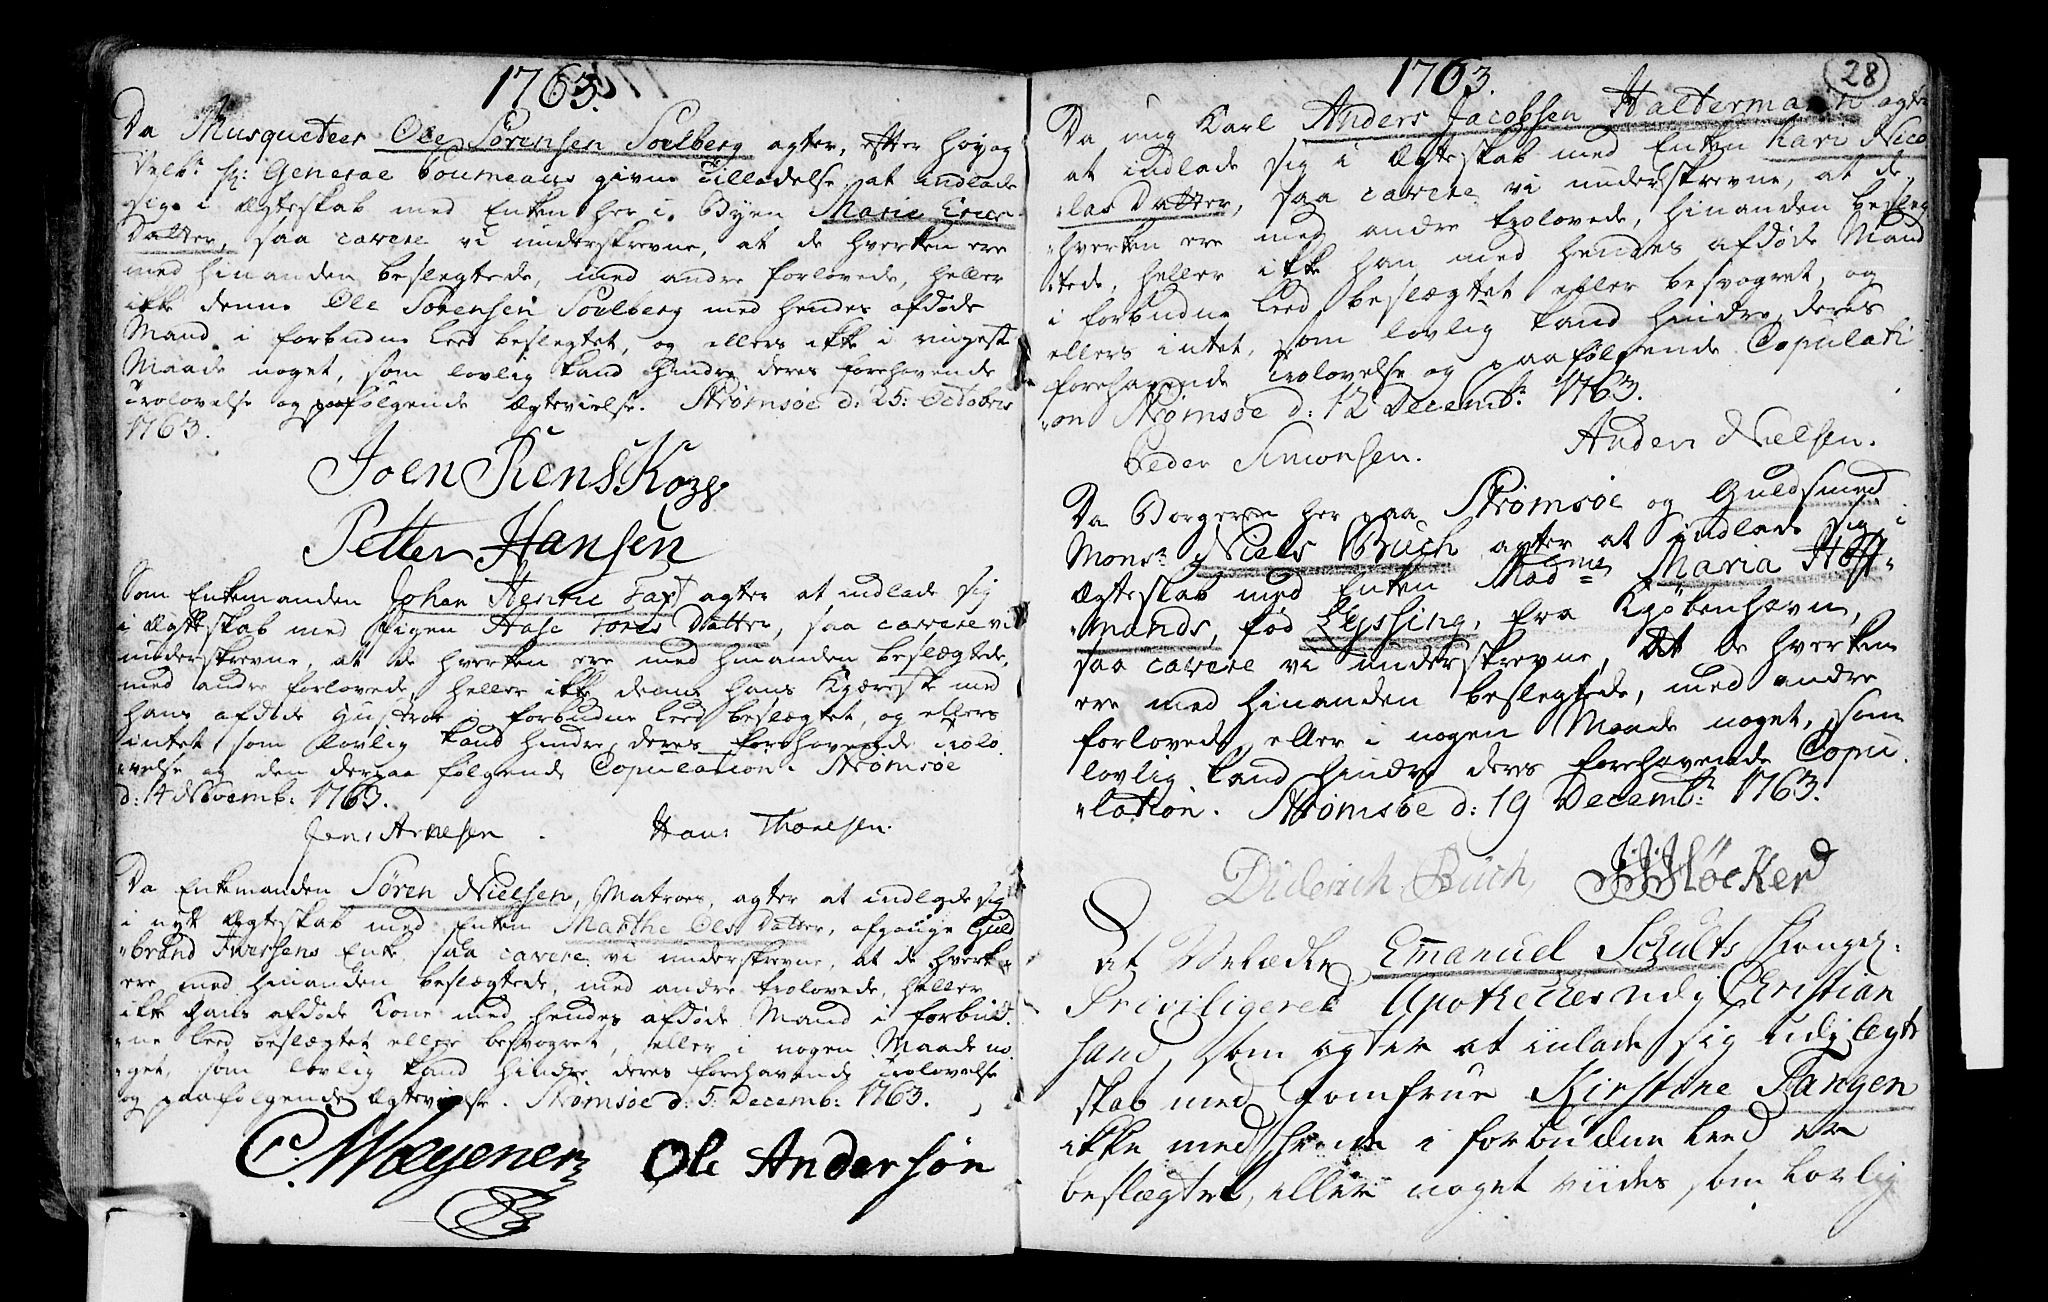 1763.
Da Musqueteer Ole Sørensen Soelberg agter, efter høyæd
Velb: Hr: General Foumeaus givne Tilladelse at indlade
sig i Ægteskab med Enken her i Byen Marie Erics
Datter, saa cavere vi underskrevne, at de hverken ere
med hinanden beslegtede, med andre forlovede, heller
ikke denne Ole Sørensen Soelberg med hendes afdøde
Mand i forbudne leed beslegtet, og ellers ikke i ringeste
Maade noget, som lovlig kand hindre deres forehavende
Trolovelse og paafølgende Ægtevielse. Strømsøe d: 25: Octobris
1763.
Joen Jens
Petter Hansen
Som Enkemanden Johan Henric Taxt agter at indlade sig
i Ægteskab med Pigen Aase Tores Datter, saa cavere vi
underskrevne, at de hverken ere med hinanden beslægtede,
med andre forlovede, heller ikke denne hans Kjæreste med
hans afdøde Hustroe i forbudne leed beslægtet, og ellers
intet som lovlig kand hindre deres forehavende Trolo
-velse og den derpaa følgende Copulation. Strømsøe
d: 14 Novemb: 1763.
Jens Arnesen. Hans Thoresen.
Da Enkemanden Søren Nielsen, Matroes, agter at indlade sig
i nytt Ægteskab med Enken Marthe Ols Datter, afgangne Guld
-brand Iversens Enke, saa cavere vi underskrevne, at de hverken
ere med hinanden beslegtede, med andre trolovede, heller
ikke hans afdøde Kone med hendes afdøde Mand i forbud
-ne leed beslægtet eller besvogret, eller i nogen Maade no
-get, som lovlig kand hindre deres forehavende Trolovelse
og paafølgende Ægtevielse. Strømsøe d: 5 Decemb: 1763.
C. Wægener Ole Andersøn
1763.
28
Da ung Karl Anders Jacobsen Haltermann agter
at indlade sig i Ægteskab med Enken Kari Nico
-las Datter, saa cavere vi underskrevne, at de
hverken ere med andre trolovede, hinanden besleg
-tede, heller ikke han med hendes afdøde Mand
i forbudne leed beslægtet eller besvogret, og
ellers intet, som lovlig kand hindre deres
forehavende Trolovelse og paafølgende Copulati
-on Strømsøe d: 12 Decembr: 1763.
Peder Simonsen. Anders Nielsen.
Da Borgeren her paa Strømsøe og Guldsmed
Monsr: Niels Buch agter at indlade sig i
Ægteskab med Enken Madme Maria Hoff-
-mands, fød Lyssing, fra Kjøbenhavn,
saa cavere vi underskrevne, at de hverken
ere med hinanden beslegtede, med andre
forlovede, eller i nogen Maade noget, som
lovlig kand hindre deres forehavende Copu
-lation. Strømsøe d: 19 Decembr: 1763.
Diderich Buch,
At Velædle Emanuel Schults Kongel:
Priviligered Apothecker udj Christian
sand, som agter at indlade sig udj Ægte
skab med Jomfrue Kirstine Tangen
ikke med hende i forbudne leed er
beslægted, eller noget viides som Lovlig